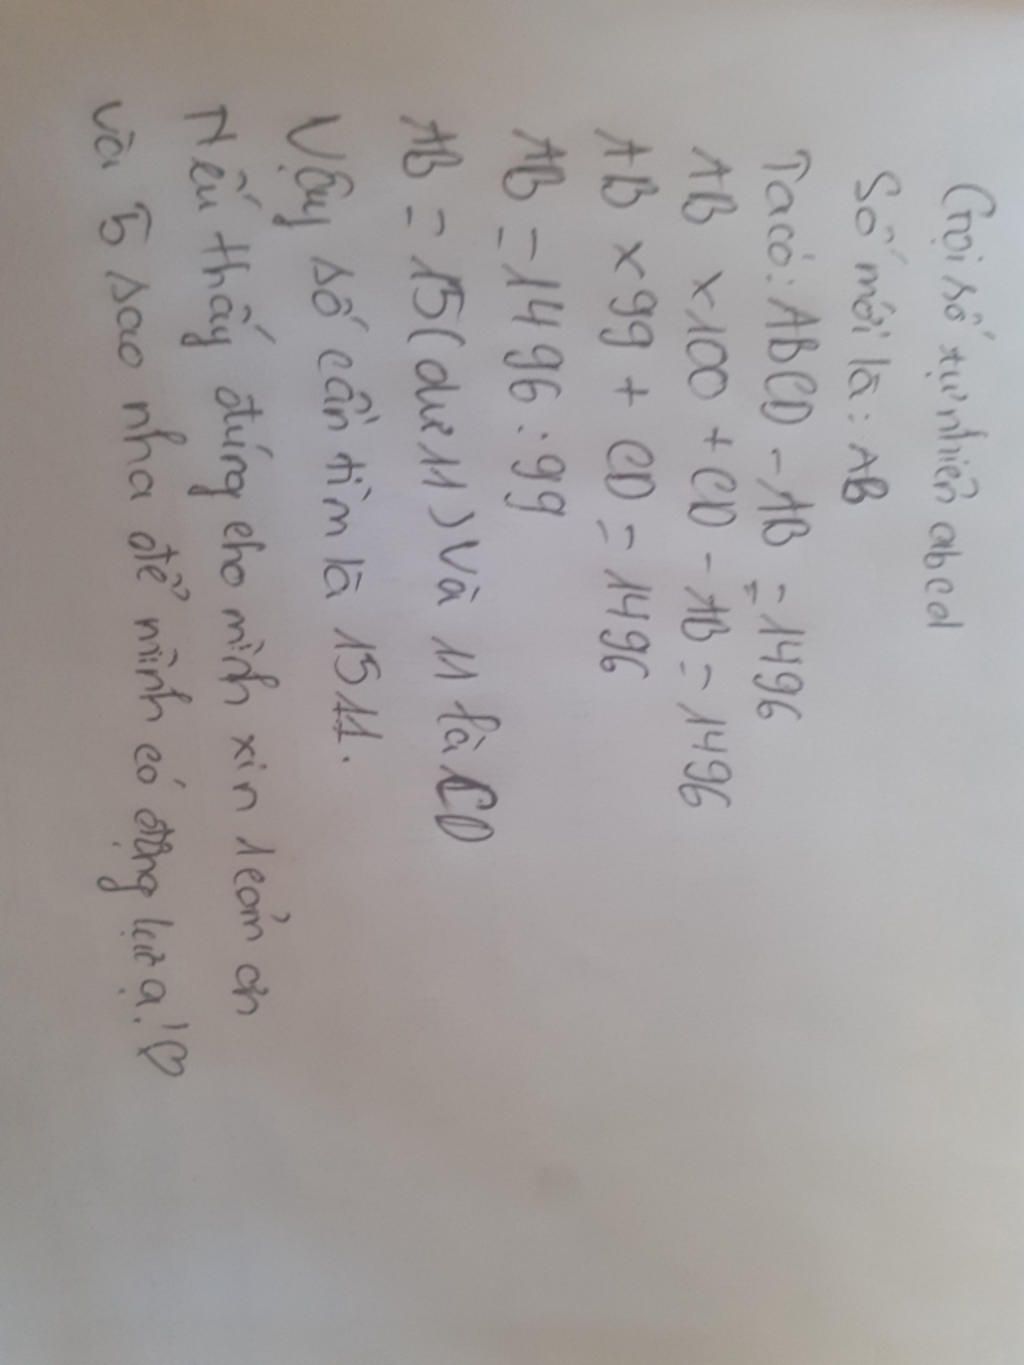 Gọi số tự nhiên abcd
Số mới là: AB
Ta có: ABCD - AB = 1496
AB x 100 + CD - AB = 1496
AB x 99 + CD = 1496
AB = 1496 : 99
AB = 15 (dư 11) Và 11 là CD
Vậy số cần tìm là 1511.
Nếu thấy đúng cho mình xin 1 cảm ơn
và 5 sao nha để mình có động lực ạ!♡